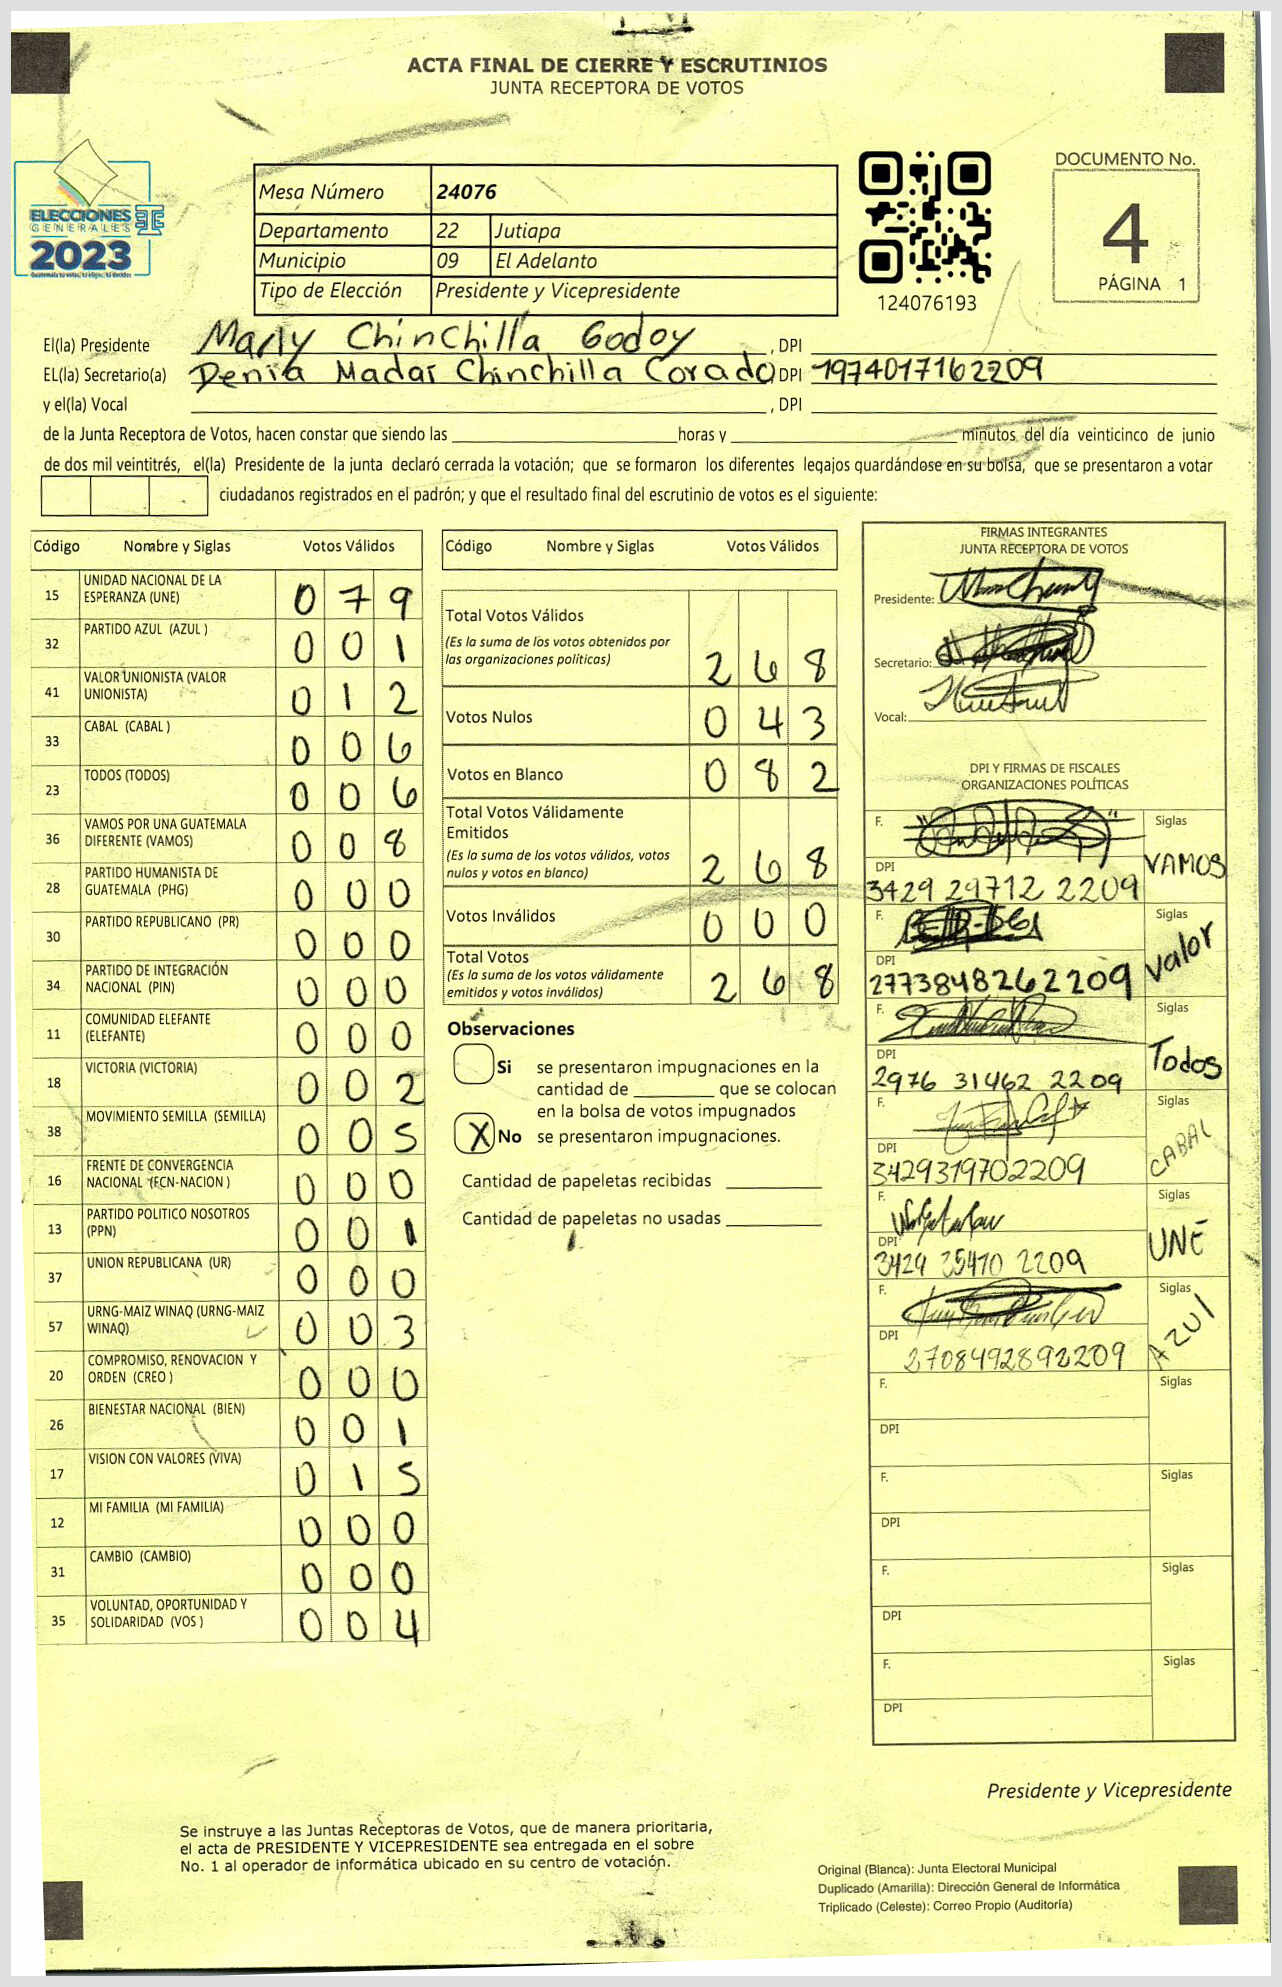 ACTA FINAL DE CIERRE Y ESCRUTINIOS
JUNTA RECEPTORA DE VOTOS
ELECCIONES
GENERALES
2023
Mesa Número 24076
Departamento 22 Jutiapa
Municipio 09 El Adelanto
Tipo de Elección Presidente y Vicepresidente
124076193
DOCUMENTO No.
4
PÁGINA 1
El(la) Presidente Marly Chinchilla Godoy , DPI
EL(la) Secretario(a) Denia Madai Chinchilla Corado DPI 1974017162209
y el(la) Vocal , DPI
de la Junta Receptora de Votos, hacen constar que siendo las horas y minutos del día veinticinco de junio
de dos mil veintitrés, el(la) Presidente de la junta declaró cerrada la votación; que se formaron los diferentes legajos guardándose en su bolsa, que se presentaron a votar
ciudadanos registrados en el padrón; y que el resultado final del escrutinio de votos es el siguiente:
Código Nombre y Siglas Votos Válidos
15 UNIDAD NACIONAL DE LA ESPERANZA (UNE) 0 7 9
32 PARTIDO AZUL (AZUL ) 0 0 1
41 VALOR UNIONISTA (VALOR UNIONISTA) 0 1 2
33 CABAL (CABAL ) 0 0 6
23 TODOS (TODOS) 0 0 6
36 VAMOS POR UNA GUATEMALA DIFERENTE (VAMOS) 0 0 8
28 PARTIDO HUMANISTA DE GUATEMALA (PHG) 0 0 0
30 PARTIDO REPUBLICANO (PR) 0 0 0
34 PARTIDO DE INTEGRACIÓN NACIONAL (PIN) 0 0 0
11 COMUNIDAD ELEFANTE (ELEFANTE) 0 0 0
18 VICTORIA (VICTORIA) 0 0 2
38 MOVIMIENTO SEMILLA (SEMILLA) 0 0 5
16 FRENTE DE CONVERGENCIA NACIONAL (FCN-NACION ) 0 0 0
13 PARTIDO POLITICO NOSOTROS (PPN) 0 0 1
37 UNION REPUBLICANA (UR) 0 0 0
57 URNG-MAIZ WINAQ (URNG-MAIZ WINAQ) 0 0 3
20 COMPROMISO, RENOVACION Y ORDEN (CREO ) 0 0 0
26 BIENESTAR NACIONAL (BIEN) 0 0 1
17 VISION CON VALORES (VIVA) 0 1 5
12 MI FAMILIA (MI FAMILIA) 0 0 0
31 CAMBIO (CAMBIO) 0 0 0
35 VOLUNTAD, OPORTUNIDAD Y SOLIDARIDAD (VOS ) 0 0 4
Código Nombre y Siglas Votos Válidos
Total Votos Válidos
(Es la suma de los votos obtenidos por
las organizaciones políticas) 2 6 8
Votos Nulos 0 4 3
Votos en Blanco 0 8 2
Total Votos Válidamente
Emitidos
(Es la suma de los votos válidos, votos
nulos y votos en blanco) 2 6 8
Votos Inválidos 0 0 0
Total Votos
(Es la suma de los votos válidamente
emitidos y votos inválidos) 2 6 8
Observaciones
Si se presentaron impugnaciones en la
cantidad de que se colocan
en la bolsa de votos impugnados
X No se presentaron impugnaciones.
Cantidad de papeletas recibidas
Cantidad de papeletas no usadas
FIRMAS INTEGRANTES
JUNTA RECEPTORA DE VOTOS
Presidente:
Secretario:
Vocal:
DPI Y FIRMAS DE FISCALES
ORGANIZACIONES POLÍTICAS
F. Siglas
DPI VAMOS
3429 29712 2209
F. Siglas
DPI Valor
2773848262209
F. Siglas
DPI Todos
2976 31462 2209
F. Siglas
DPI CABAL
3429319702209
F. Siglas
DPI UNE
3429 35470 2209
F. Siglas
DPI AZUl
2708492892209
F. Siglas
DPI
F. Siglas
DPI
F. Siglas
DPI
F. Siglas
DPI
Presidente y Vicepresidente
Se instruye a las Juntas Receptoras de Votos, que de manera prioritaria,
el acta de PRESIDENTE Y VICEPRESIDENTE sea entregada en el sobre
No. 1 al operador de informática ubicado en su centro de votación.
Original (Blanca): Junta Electoral Municipal
Duplicado (Amarilla): Dirección General de Informática
Triplicado (Celeste): Correo Propio (Auditoría)